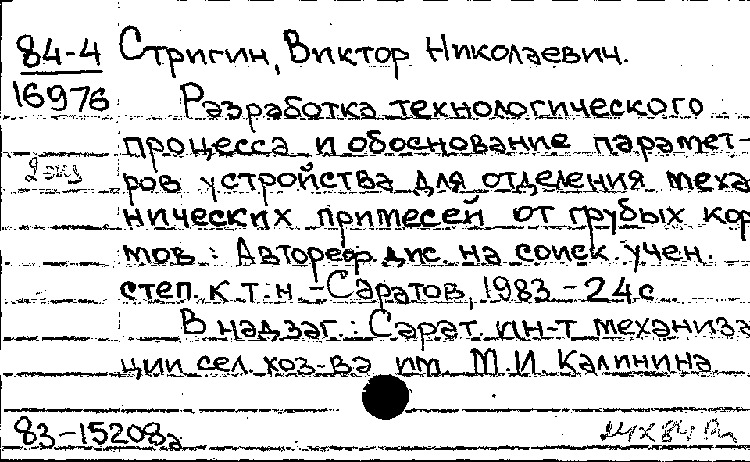 84-4 Стригин, Виктор Николаевич.
16976 Разработка технологического
процесса и обоснование парамет-
2 экз ров устройства для отделения меха
нических примесей от грубых кор
мов : Автореф. дис. на соиск. учен.
степ. к т.н. - Саратов, 1983 - 24с
В надзаг.: Сарат. ин-т механиза
ции сел. хоз-ва им. М.И. Калинина
83-15208а